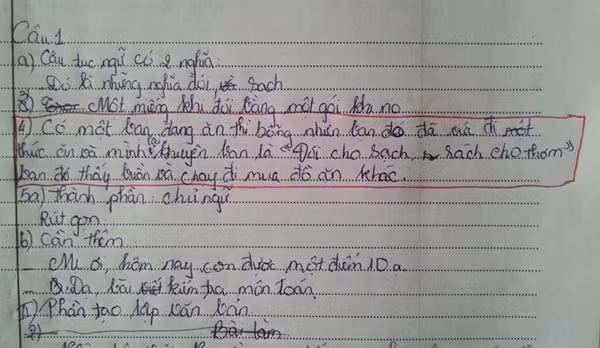 Câu 1
a) Câu tục ngữ có 2 nghĩa:
Đó là những nghĩa đói, sạch
3) Một miếng khi đói bằng một gói khi no
4) Có một bạn đang ăn thì bỗng nhiên bạn đó đã vứt đi một
thức ăn và mình khuyên bạn là "Đói cho sạch, rách cho thơm"
bạn đó thấy buồn và chạy đi mua đồ ăn khác.
5a) Thành phần: chủ ngữ
Rút gọn:
b) Cần thêm
- Mẹ ơi, hôm nay con được một điểm 10 ạ
- Dạ, bài kiểm tra môn Toán.
II) Phần tạo lập văn bản
2) Bài làm